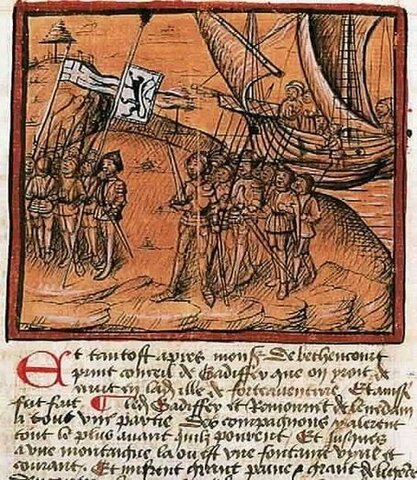 Et tantost apres mons de bethencourt
print conseil de Gadiffer que on yroit de
nuit en lad ille de forteaventure Et ainsi
fut fait Led Gadiffer et Remonnet de
a tout une partie des compaignons y alerent
tout le plus avant quilz peurent Et jusques
a une montaigne la ou est une fontaine vive et
courant Et mirent grant paine grant